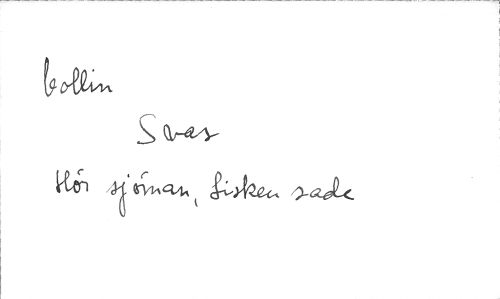 Collin
Svar
Hör sjöman, fisken sade